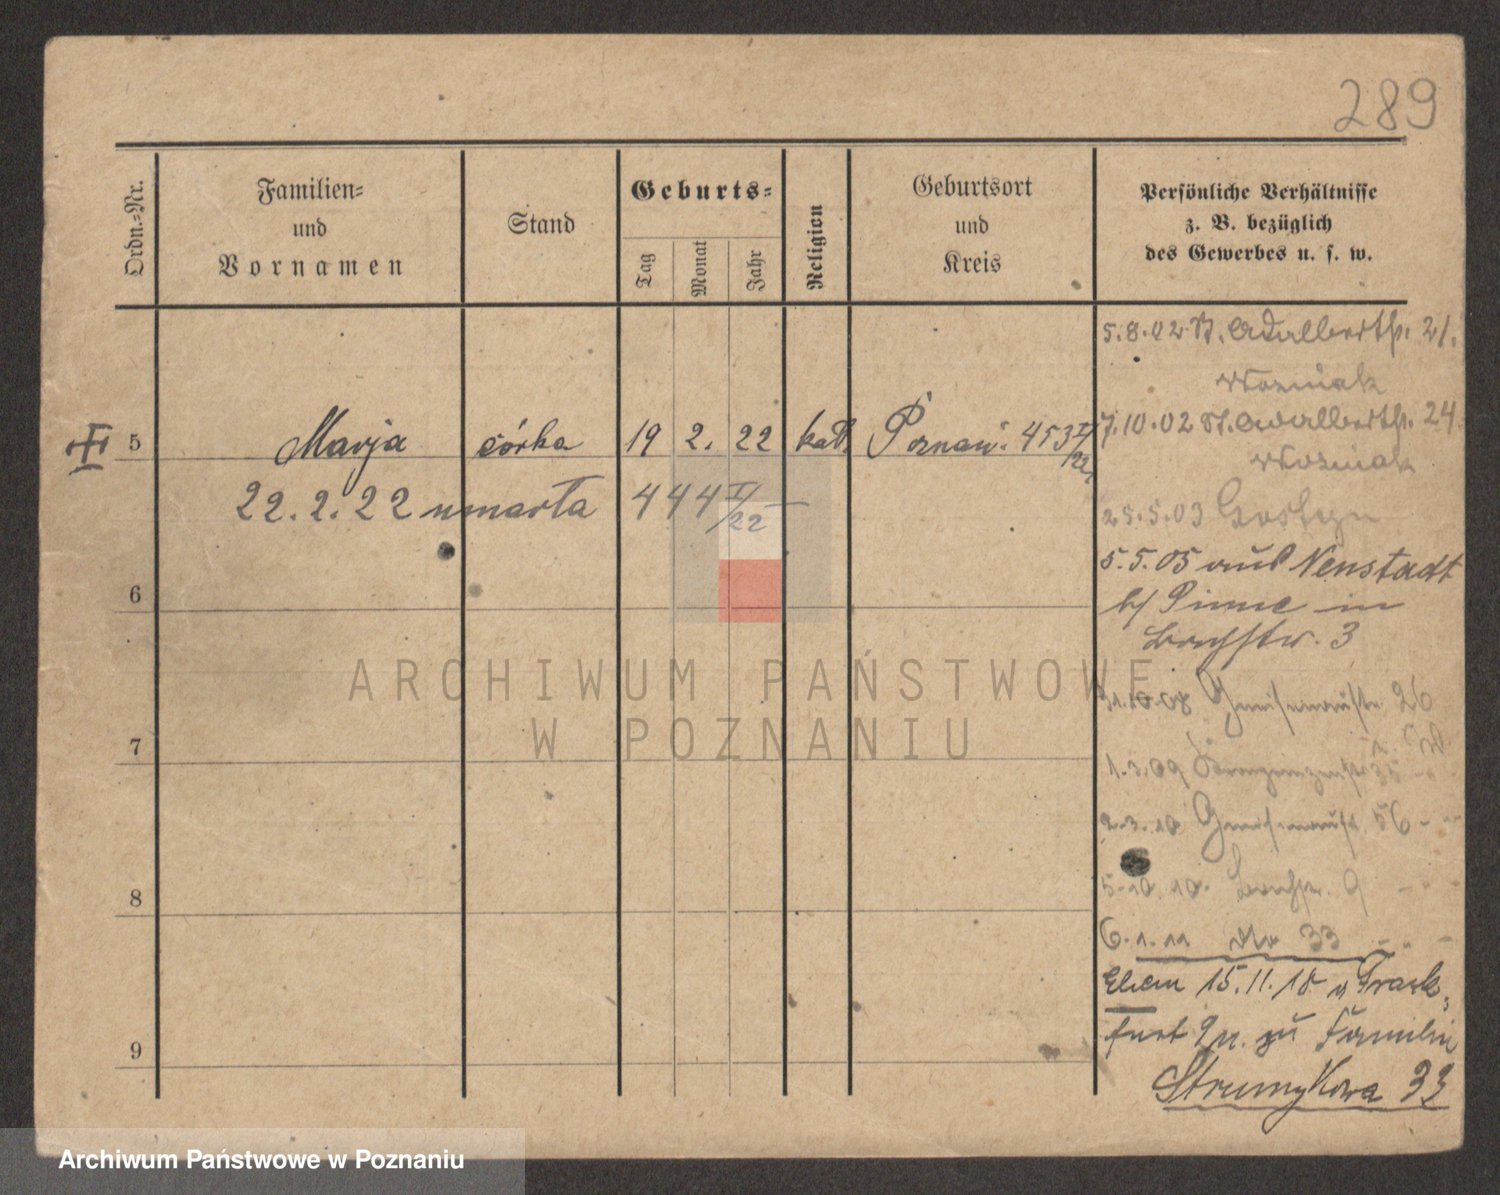 289
Ordn.=Nr.
Familien=
und
Vornamen
Stand
Geburts=
Tag
Monat
Jahr
Religion
Geburtsort
und
Kreis
Persönliche Verhältnisse
z. B. bezüglich
des Gewerbes u. s. w.
5.8.02 St. Adalbertstr. 21.
Wozniak
5 Marja córka 19 2. 22 kat. Poznań. 453 I/22
7.10.02 St. Adalbertstr. 24.
Wozniak
22.2.22 umarła 444 I/22
25.5.03 Gostyn
5.5.05 aus Neustadt
b/ Pinne in
Bachstr. 3
6
31.10.08 Gneisenaustr. 26
7
1.3.09 35
2.3.10 Gneisenaustr 56
8
5.10.10. Bachstr. 9
6.1.11 33
Ehem 15.11.18 v Frank=
furt zu Familie
9
Strumykowa 33
ARCHIWUM PAŃSTWOWE
W POZNANIU
Archiwum Państwowe w Poznaniu